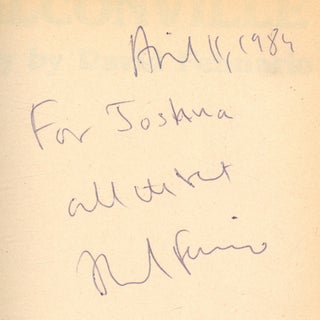 April 11, 1984
For Joshua
all the best